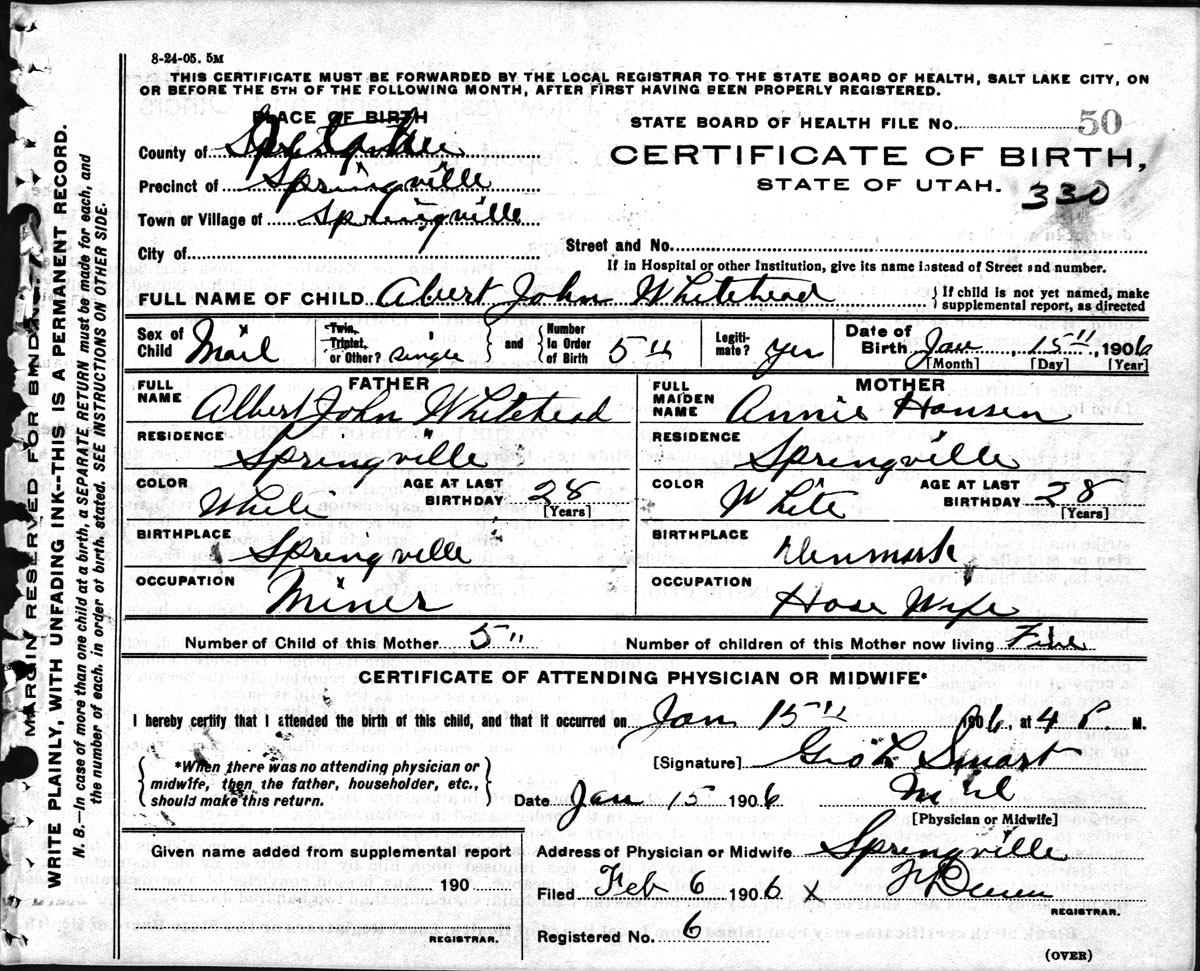 8-24-05. 5M
THIS CERTIFICATE MUST BE FORWARDED BY THE LOCAL REGISTRAR TO THE STATE BOARD OF HEALTH, SALT LAKE CITY, ON
OR BEFORE THE 5TH OF THE FOLLOWING MONTH, AFTER FIRST HAVING BEEN PROPERLY REGISTERED.
PLACE OF BIRTH
STATE BOARD OF HEALTH FILE No. 50
County of
CERTIFICATE OF BIRTH,
Precinct of Springville
STATE OF UTAH. 330
Town or Village of Springville
City of
Street and No.
If in Hospital or other Institution, give its name instead of Street and number.
FULL NAME OF CHILD Abert John Whitehead { If child is not yet named, make
supplemental report, as directed
Sex of Child Mail Twin, Triplet, or Other? single } and { Number In Order of Birth 5" Legiti-mate? Yes Date of Birth Jan 15", 1906
[Month] [Day] [Year]
FATHER
FULL NAME Albert John Whitehead
RESIDENCE Springville
COLOR White AGE AT LAST BIRTHDAY 28 [Years]
BIRTHPLACE Springville
OCCUPATION Miner
MOTHER
FULL MAIDEN NAME Annie Hansen
RESIDENCE Springville
COLOR White AGE AT LAST BIRTHDAY 28 [Years]
BIRTHPLACE Denmark
OCCUPATION Hose Wife
Number of Child of this Mother 5" Number of children of this Mother now living
CERTIFICATE OF ATTENDING PHYSICIAN OR MIDWIFE*
I hereby certify that I attended the birth of this child, and that it occurred on Jan 15" 1906 at 4 P. M.
[Signature] Geo L Smart
{ *When there was no attending physician or
midwife, then the father, householder, etc.,
should make this return. }
Date Jan 15 1906 M D
[Physician or Midwife]
Given name added from supplemental report
190
REGISTRAR.
Address of Physician or Midwife Springville
Filed Feb 6 1906 X
REGISTRAR.
Registered No. 6
(OVER)
MARGIN RESERVED FOR BINDING
WRITE PLAINLY, WITH UNFADING INK--THIS IS A PERMANENT RECORD.
N. B.—In case of more than one child at a birth, a SEPARATE RETURN must be made for each, and
the number of each, in order of birth, stated. SEE INSTRUCTIONS ON OTHER SIDE.